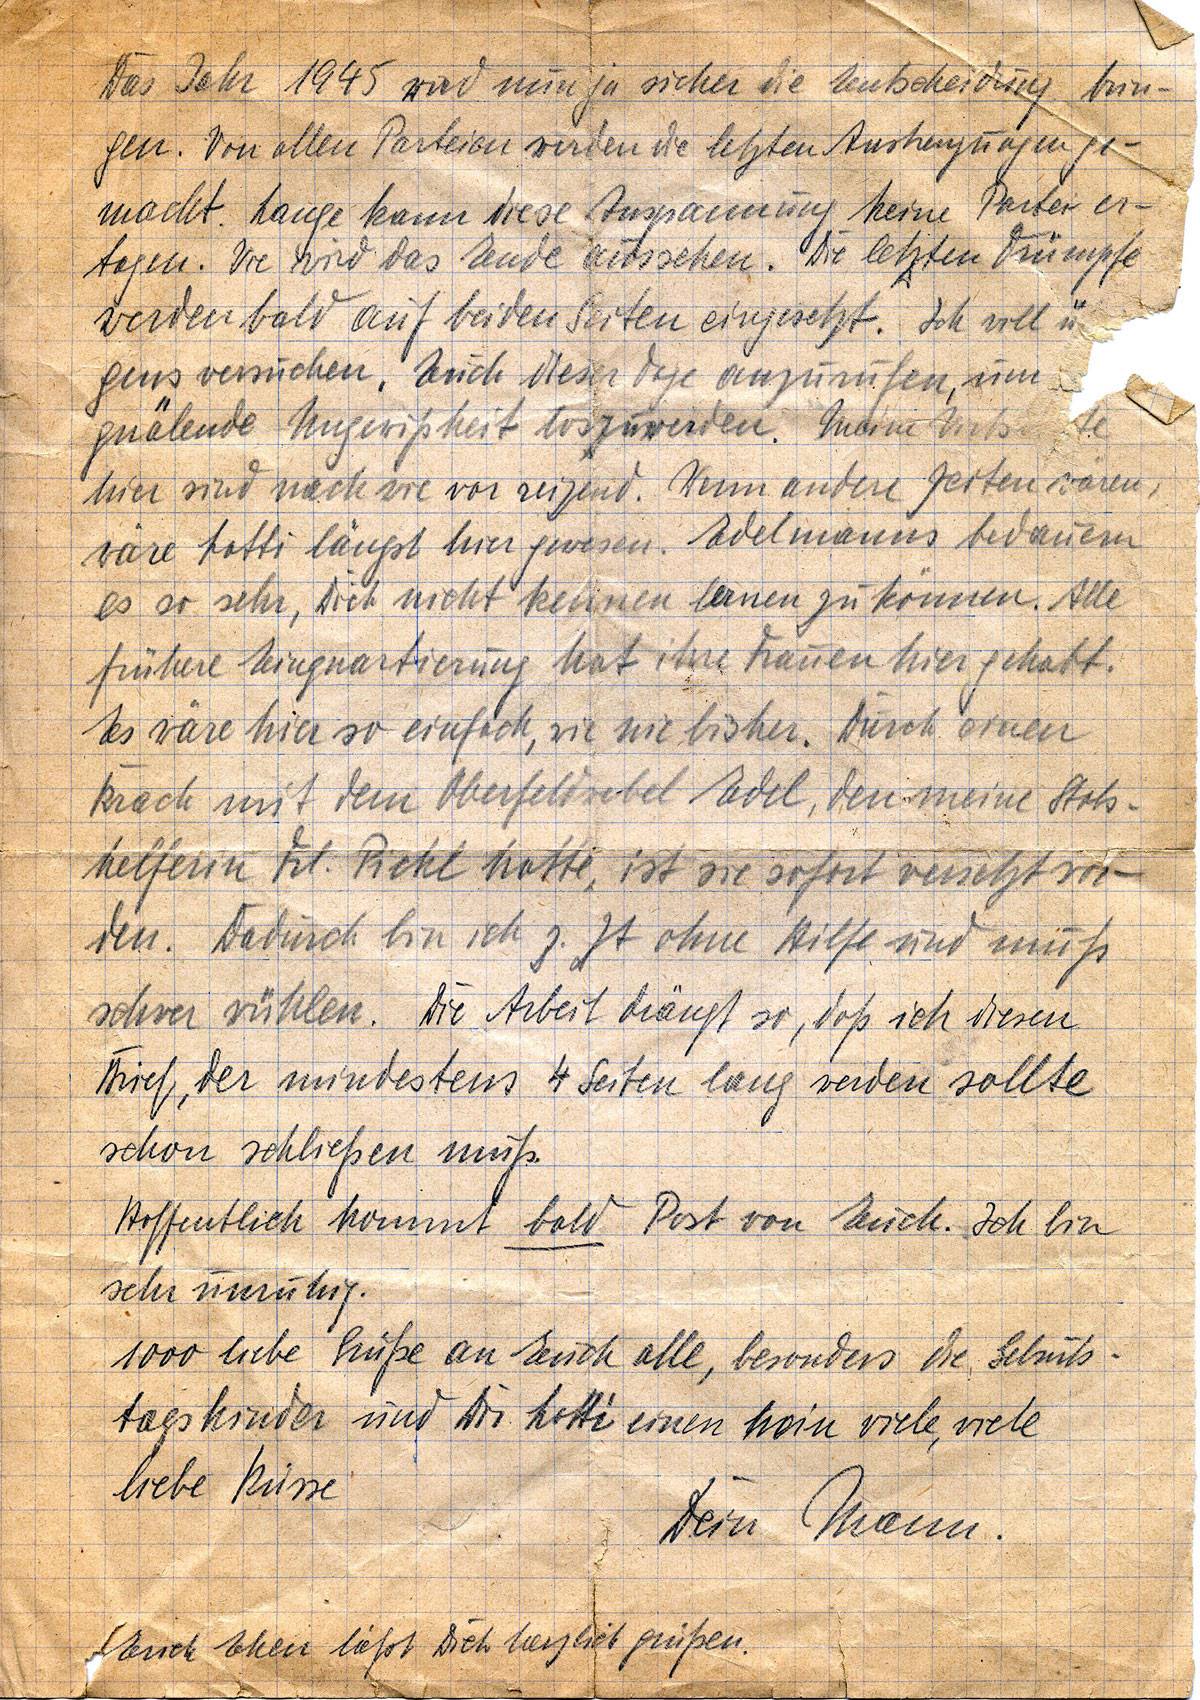 Das Jahr 1945 wird nun ja sicher die Entscheidung brin-
gen. Von allen Parteien werden die letzten Anstrengungen ge-
macht. Lange kann diese Anspannung keine Partei er-
tragen. Wie wird das Ende aussehen. Die letzten Trümpfe
werden bald auf beiden Seiten eingesetzt. Ich will ü
gens versuchen, Euch dieser Tage anzurufen, um
quälende Ungewißheit loszuwerden. Meine
hier sind nach wie vor reizend. Wenn andere Zeiten wären,
wäre Lotti längst hier gewesen. Edelmanns bedauern
es so sehr, Dich nicht kennen lernen zu können. Alle
frühere Einquartierung hat ihre Frauen hier gehabt.
Es wäre hier so einfach, wie nie bisher. Durch einen
Krach mit dem Oberfeldwebel Edel, den meine Stabs-
helferin Frl. Pickl hatte, ist sie sofort versetzt wor-
den. Dadurch bin ich z. Zt ohne Hilfe und muß
schwer wühlen. Die Arbeit drängt so, daß ich diesen
Brief, der mindestens 4 Seiten lang werden sollte
schon schließen muß.
Hoffentlich kommt bald Post von Euch. Ich bin
sehr unruhig.
1000 liebe Grüße an Euch alle, besonders die Geburts-
tagskinder und Dir Lotti einen viele, viele
liebe Küsse
Dein Mann.
Erich läßt Dich herzlich grüßen.